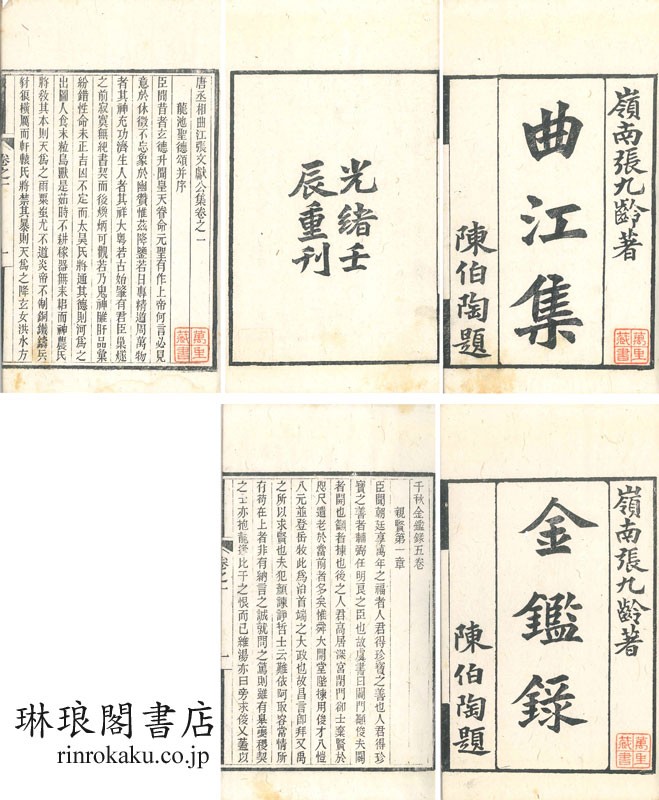 嶺南張九齡著
曲江集
陳伯陶題
萬里
藏書
光緒壬
辰重刊
唐丞相曲江張文獻公集卷之一
龍池聖德頌并序
臣聞昔者玄德升聞皇天眷命元聖有作上帝何言必見
意於休徵不忘象於幽贊惟茲降鑒若曰專精道周萬物
者其神充功濟生人者其祥大粵若古始肇有君臣巢燧
之前寂寞無紀書契而後煥炳可觀若乃鬼神雕肝品彙
紛錯性命未正吉凶不定而太昊氏將通其德則河爲之
出圖人食未粒鳥獸是茹時不耕稼器無耒耜而神農氏
將敎其本則天爲之雨粟蚩尤不道炎帝不制銅鐵鑄兵
豺狼橫厲而軒轅氏將禁其暴則天爲之降玄女洪水方
卷之一
一
萬里
藏書
嶺南張九齡著
金鑑錄
陳伯陶題
萬里
藏書
千秋金鑑錄五卷
視賢第一章
臣聞朝廷享萬年之福者人君得珍寶之善也人君得珍
寶之善者輔弼任明良之臣也故虞書曰闢門籲俊夫闢
者開也籲者揀也後之人君高居深宮閉門卻士棄賢於
咫尺遺老於當前者多矣惟舜大開堂陛揀用俊才八愷
八元並登岳牧此爲治首端之大政也故昌言卽拜又禹
之所以求賢也夫犯顏諫諍哲士云難依阿取容常情所
有苟在上者非有納言之誠就問之篤則雖有皋夔稷契
之士亦抱龍逄比干之恨而已雖湯亦曰旁求俊乂蓋以
卷之一
一
琳琅閣書店
rinrokaku.co.jp